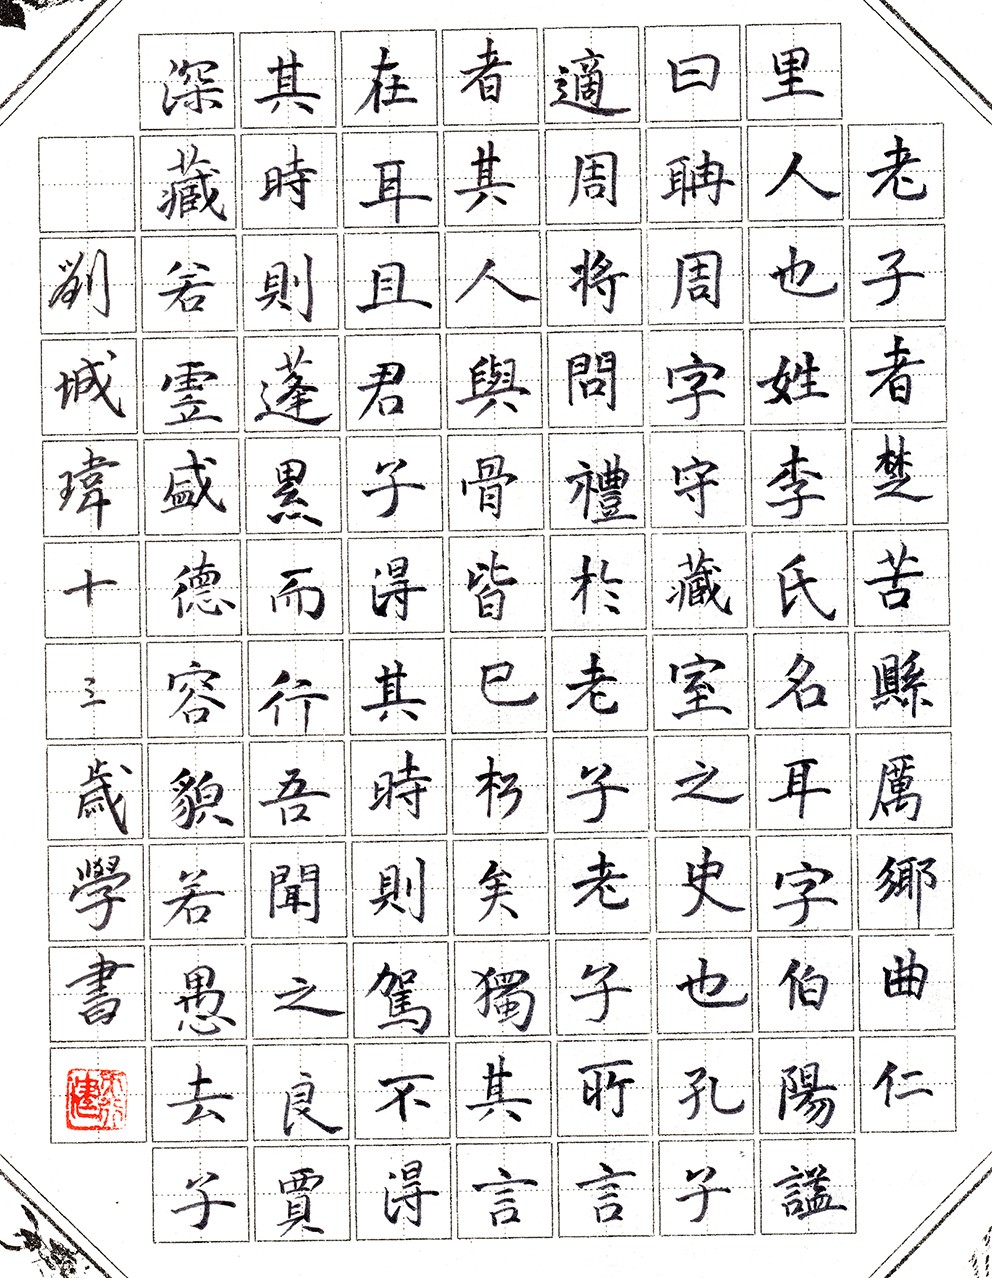 老子者楚苦縣厲鄉曲仁
里人也姓李氏名耳字伯陽謚
曰聃周字守藏室之史也孔子
適周將問禮於老子老子所言
者其人與骨皆已朽矣獨其言
在耳且君子得其時則駕不得
其時則蓬黑而行吾聞之良賈
深藏若虛盛德容貌若愚去子
劉城瑋十三歲學書